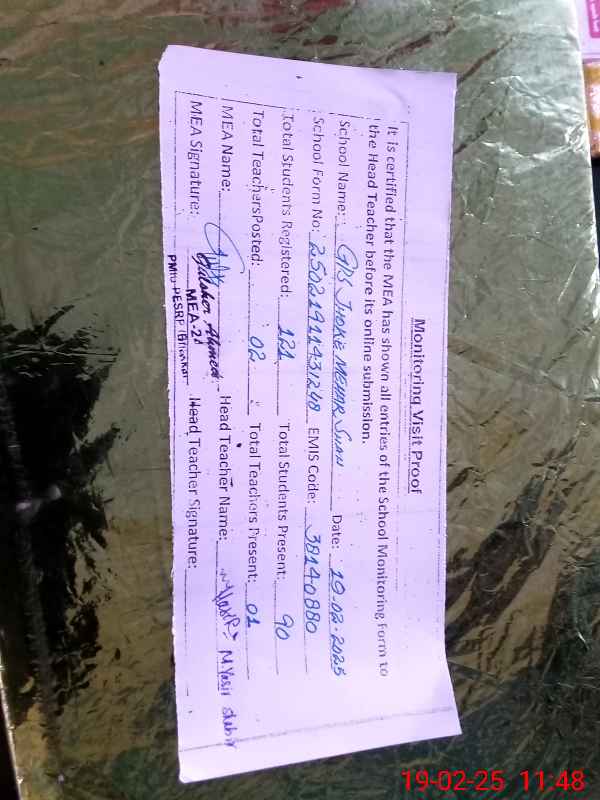 Monitoring Visit Proof
It is certified that the MEA has shown all entries of the School Monitoring Form to
the Head Teacher before its online submission.
School Name: GPS JHOKE MEHAR SHAH Date: 19-02-2025
School Form No: 25021911431248 EMIS Code: 38140880
Total Students Registered: 121 Total Students Present: 90
Total TeachersPosted: 02 Total Teachers Present: 01
MEA Name: Head Teacher Name: M.Yasir
MEA Signature: Ahmed Head Teacher Signature:
MEA-21
19-02-25 11:48